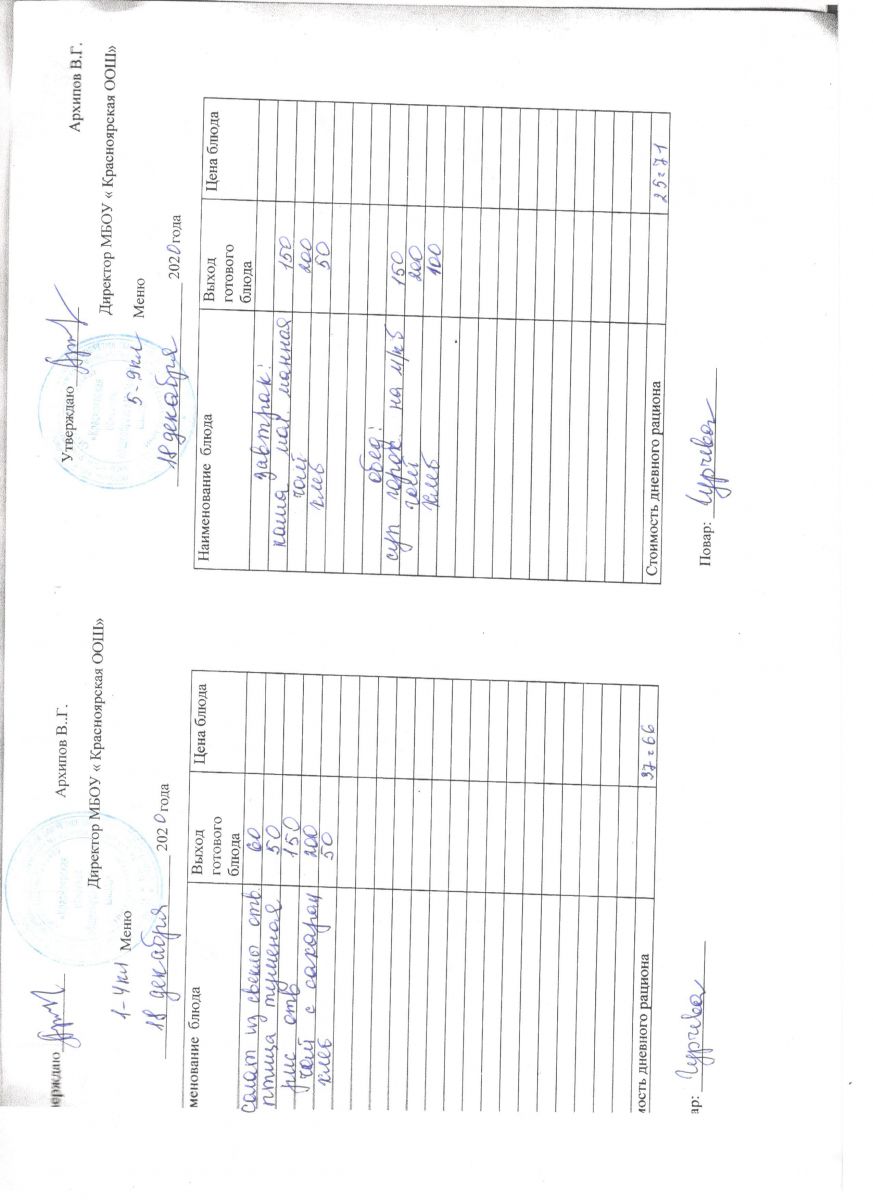 ерждаю
Архипов В..Г.
Директор МБОУ « Красноярская ООШ»
1-4кл Меню
18 декабря 2020 года
менование блюда
Выход готового блюда
Цена блюда
салат из свеклы отв. 60
птица тушеная 50
рис отв 150
чай с сахаром 200
хлеб 50
мость дневного рациона 37=66
ар:
Утверждаю
Архипов В.Г.
Директор МБОУ « Красноярская ООШ»
5-9кл Меню
18 декабря 2020 года
Наименование блюда
Выход готового блюда
Цена блюда
завтрак:
каша мол. манная 150
чай 200
хлеб 50
обед:
суп горох. на м/к б 150
чай 200
хлеб 100
Стоимость дневного рациона 25=71
Повар: